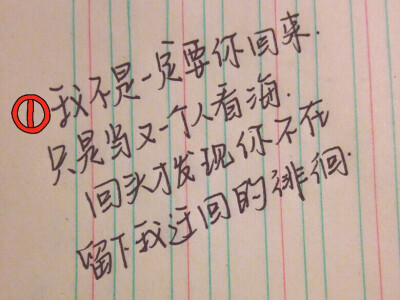 ① 我不是一定要你回来.
只是当又一个人看海.
回头才发现你不在
留下我迂回的徘徊.